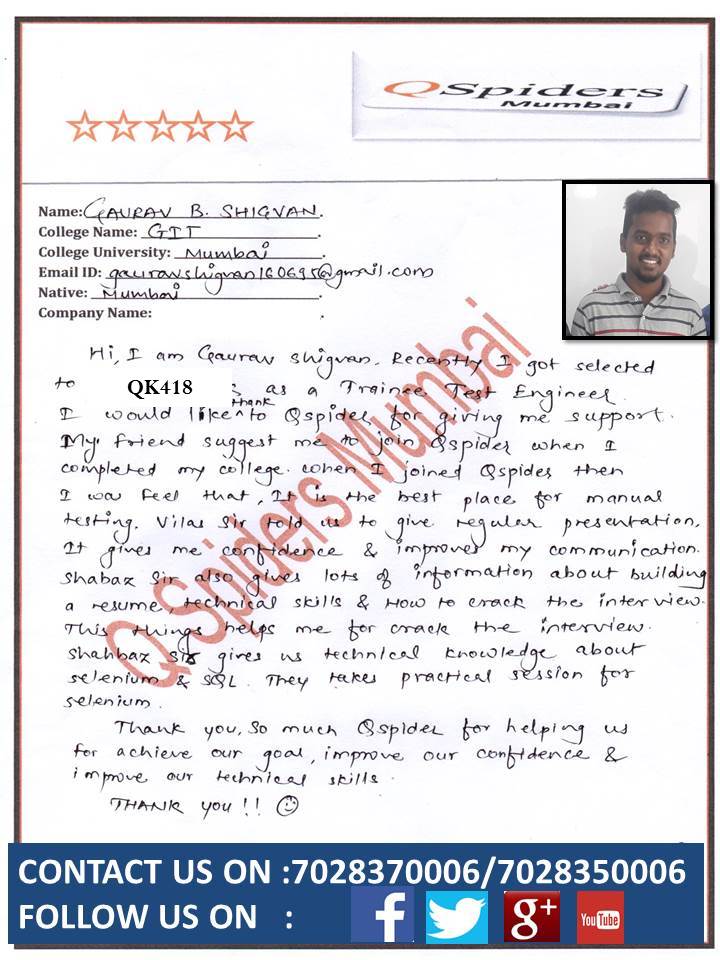 QSpiders
Mumbai
Name: GAURAV B. SHIGVAN.
College Name: GIT.
College University: Mumbai.
Email ID: gauravshigvan160695@gmail.com
Native: Mumbai.
Company Name: .
Hi, I am Gaurav Shigvan. Recently I got selected
to QK418 as a Trainee Test Engineer.
I would like ^thank to Qspider for giving me support.
My friend suggest me to join Qspider when I
completed my college. When I joined Qspider then
I wa feel that, It is the best place for manual
testing. Vilas Sir told us to give regular presentation,
It gives me confidence & improves my communication.
Shabaz Sir also gives lots of information about building
a resume, technical skills & How to crack the interview.
This things helps me for crack the interview.
Shahbaz Sir gives us technical knowledge about
selenium & SQL. They takes practical session for
selenium.
Thank you, So much Qspider for helping us
for achieve our goal, improve our confidence &
improve our technical skills.
THANK YOU!!
Q Spiders Mumbai
CONTACT US ON :7028370006/7028350006
FOLLOW US ON :
f
g+
You Tube